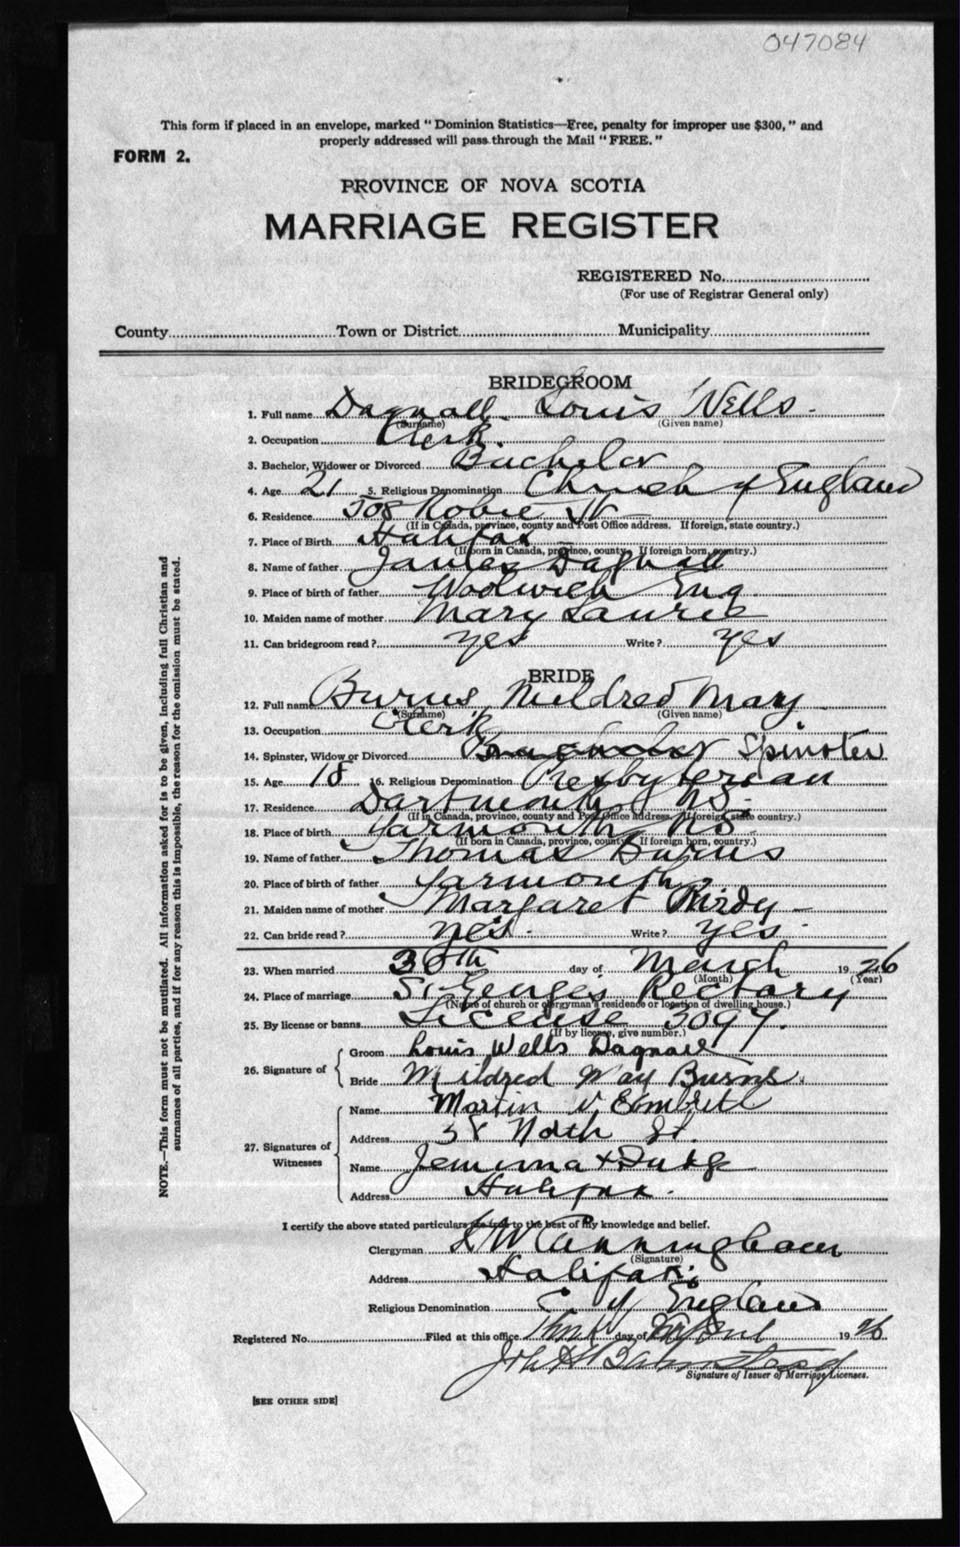 047084
This form if placed in an envelope, marked "Dominion Statistics—Free, penalty for improper use $300," and
properly addressed will pass through the Mail "FREE."
FORM 2.
PROVINCE OF NOVA SCOTIA
MARRIAGE REGISTER
REGISTERED No.
(For use of Registrar General only)
County Town or District Municipality
BRIDEGROOM
1. Full name Dagnall Louis Wells
(Surname) (Given name)
2. Occupation Clerk.
3. Bachelor, Widower or Divorced Bachelor
4. Age 21 5. Religious Denomination Church of England
6. Residence Robie St
(If in Canada, province, county and Post Office address. If foreign, state country.)
7. Place of Birth Halifax
(If born in Canada, province, county. If foreign born, country.)
8. Name of father James Dagnall
9. Place of birth of father Woolwich Eng.
10. Maiden name of mother Mary Laurie
11. Can bridegroom read? yes Write? yes
BRIDE
12. Full name Burns, Mildred Mary
(Surname) (Given name)
13. Occupation Clerk
14. Spinster, Widow or Divorced Spinster
15. Age 18 16. Religious Denomination Presbyterian
17. Residence Dartmouth NS.
(If in Canada, province, county and Post Office address. If foreign, state country.)
18. Place of birth Yarmouth NS
(If born in Canada, province, county. If foreign born, country.)
19. Name of father Thomas Burns
20. Place of birth of father Yarmouth
21. Maiden name of mother Margaret
22. Can bride read? yes. Write? yes.
23. When married 30th day of March 1926
(Month) (Year)
24. Place of marriage St Georges Rectory
(Name of church or clergyman's residence or location of dwelling house.)
25. By license or banns License 3097.
(If by license, give number.)
26. Signature of
Groom Louis Wells Dagnall
Bride Mildred May Burns
27. Signatures of Witnesses
Name Martin
Address 38 North St.
Name Jemima
Address Halifax.
I certify the above stated particulars are true to the best of my knowledge and belief.
Clergyman Cunningham
(Signature)
Address Halifax.
Religious Denomination C of England
Registered No. Filed at this office day of 1926
Signature of Issuer of Marriage Licenses.
[SEE OTHER SIDE]
NOTE.—This form must not be mutilated. All information asked for is to be given, including full Christian and
surnames of all parties, and if for any reason this is impossible, the reason for the omission must be stated.